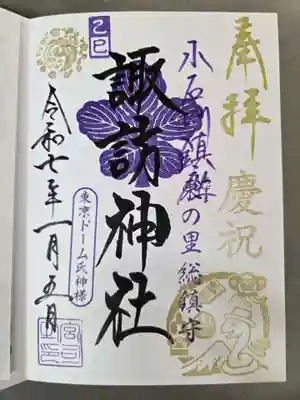 奉拝 慶祝
小石川鎮護の里総鎮守
諏訪神社
東京ドーム氏神様
乙巳
令和七年一月五月